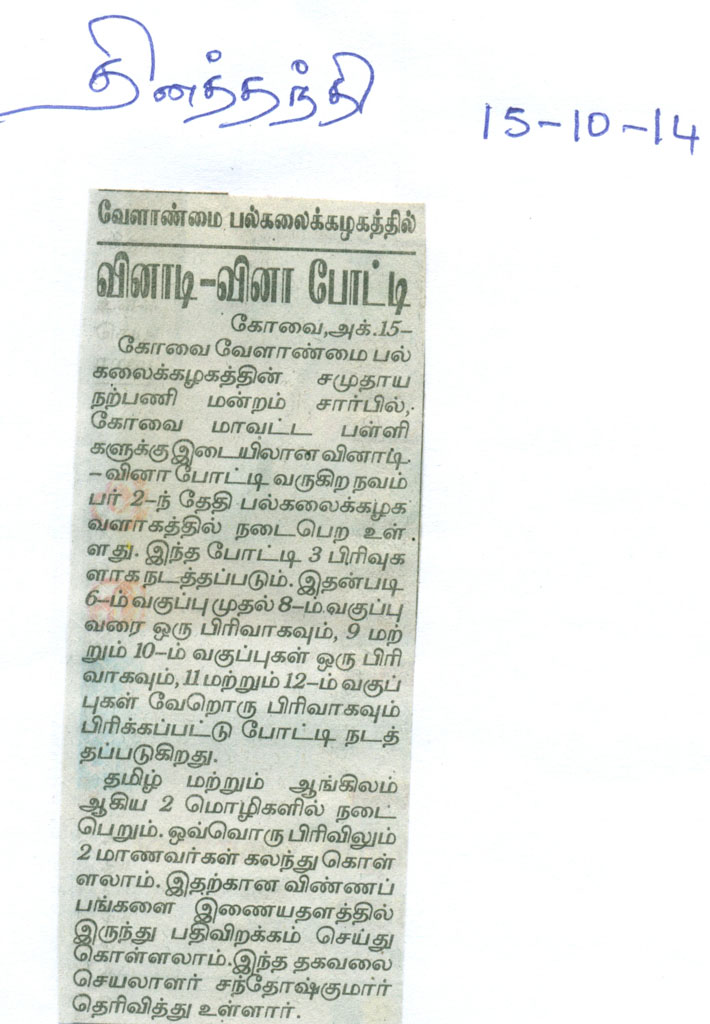 தினத்தந்தி
15-10-14
வேளாண்மை பல்கலைக்கழகத்தில்
வினாடி-வினா போட்டி
கோவை,அக்.15-
கோவை வேளாண்மை பல்
கலைக்கழகத்தின் சமுதாய
நற்பணி மன்றம் சார்பில்,
கோவை மாவட்ட பள்ளி
களுக்கு இடையிலான வினாடி
-வினா போட்டி வருகிற நவம்
பர் 2-ந் தேதி பல்கலைக்கழக
வளாகத்தில் நடைபெற உள்
ளது. இந்த போட்டி 3 பிரிவுக
ளாக நடத்தப்படும். இதன்படி
6-ம் வகுப்பு முதல் 8-ம் வகுப்பு
வரை ஒரு பிரிவாகவும், 9 மற்
றும் 10-ம் வகுப்புகள் ஒரு பிரி
வாகவும், 11 மற்றும் 12-ம் வகுப்
புகள் வேறொரு பிரிவாகவும்
பிரிக்கப்பட்டு போட்டி நடத்
தப்படுகிறது.
தமிழ் மற்றும் ஆங்கிலம்
ஆகிய 2 மொழிகளில் நடை
பெறும். ஒவ்வொரு பிரிவிலும்
2 மாணவர்கள் கலந்து கொள்
ளலாம். இதற்கான விண்ணப்
பங்களை இணையதளத்தில்
இருந்து பதிவிறக்கம் செய்து
கொள்ளலாம்.இந்த தகவலை
செயலாளர் சந்தோஷ்குமார்
தெரிவித்து உள்ளார்.